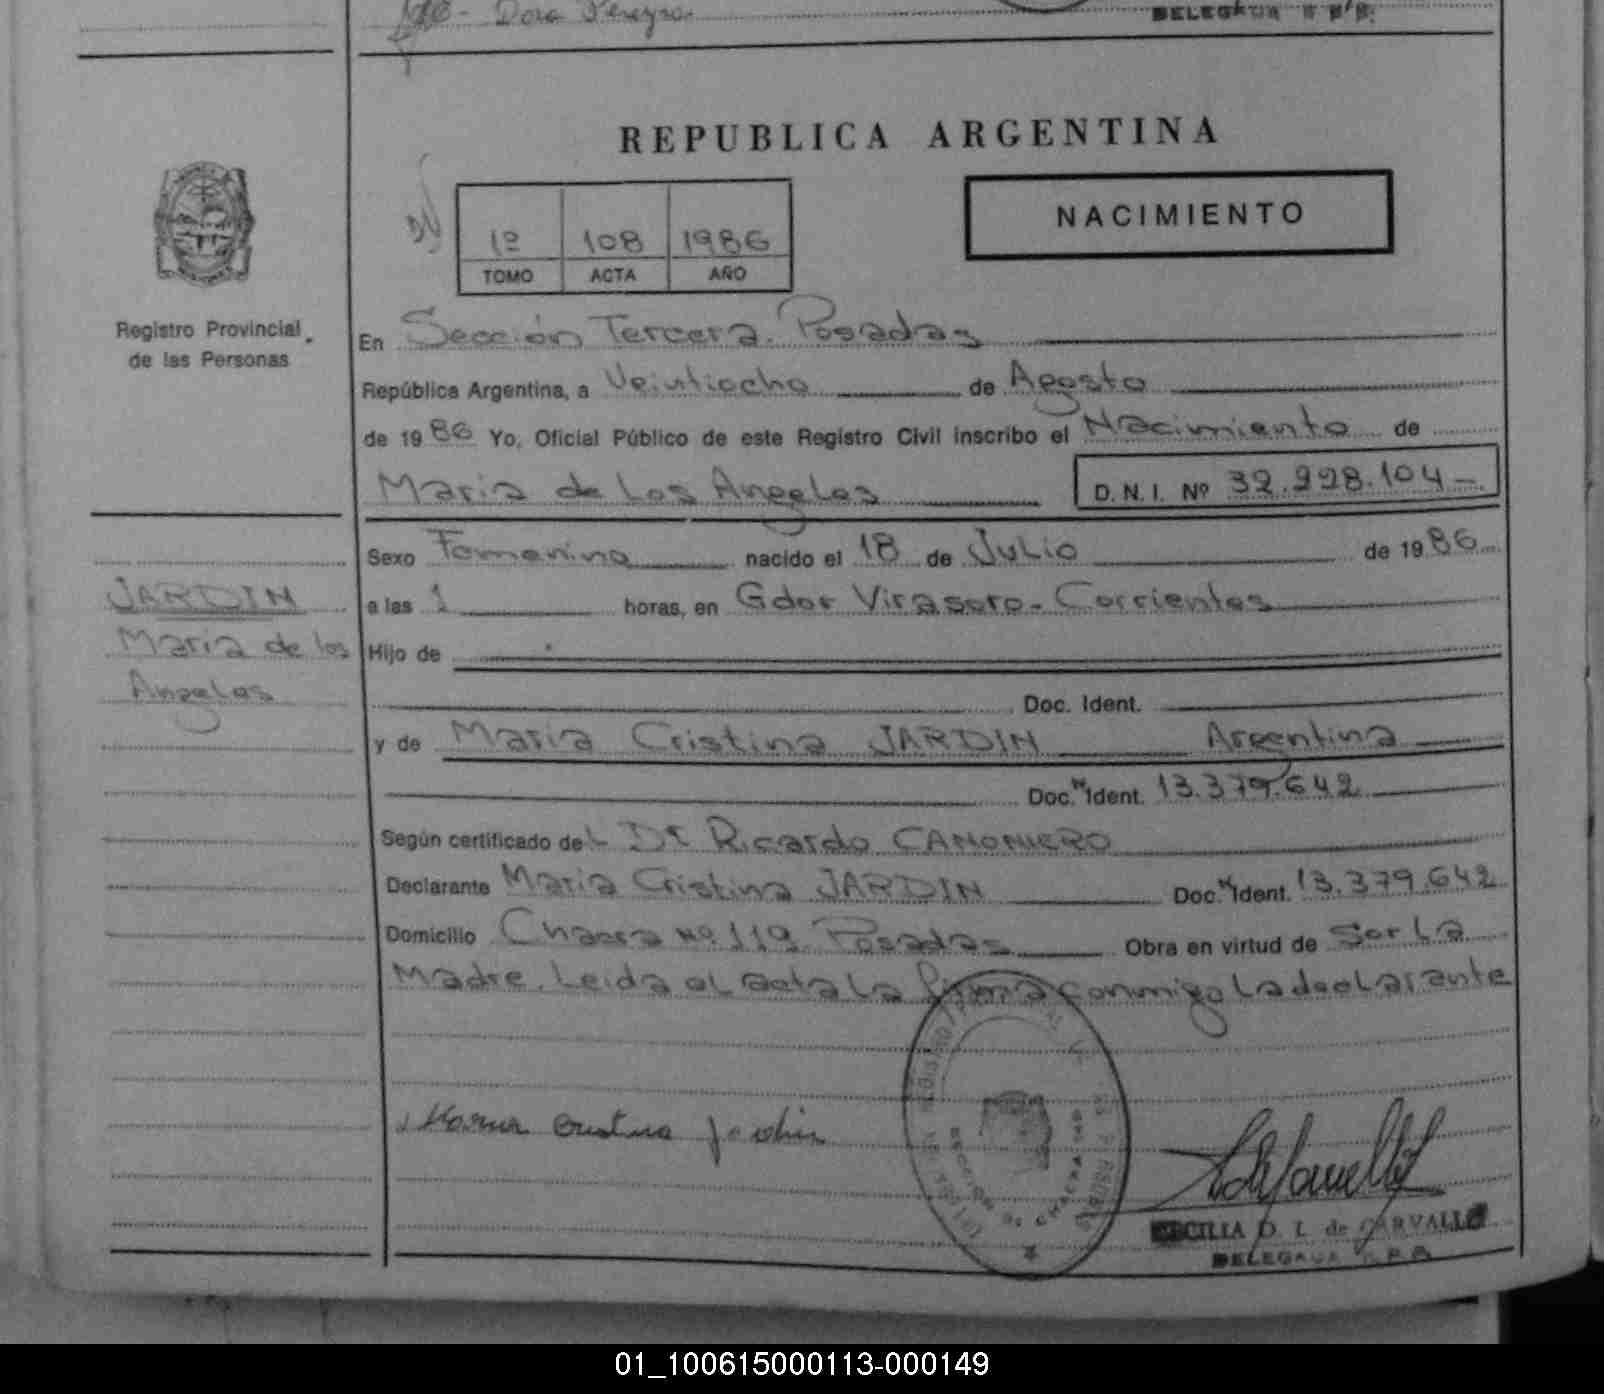 Dora Pereyra
DELEGADA R P P.
REPUBLICA ARGENTINA
NACIMIENTO
1º 108 1986
TOMO ACTA AÑO
Registro Provincial
de las Personas
En Sección Tercera. Posadas
República Argentina, a Veintiocho de Agosto
de 1986 Yo, Oficial Público de este Registro Civil inscribo el Nacimiento de
Maria de Los Angeles D.N.I. Nº 32.228.104-
Sexo Femenino nacido el 18 de Julio de 1986
JARDIN
Maria de los
Angeles
a las 1 horas, en Gdor Virasoro - Corrientes
Hijo de
Doc. Ident.
y de Maria Cristina JARDIN Argentina
Doc. Ident. 13.379.642
Según certificado del Dr Ricardo CANONIERO
Declarante Maria Cristina JARDIN Doc. Ident. 13.379.642
Domicilio Chacra Nº 119 Posadas Obra en virtud de Ser La
Madre. Leida el acta La firma conmigo La declarante
Maria Cristina Jardin
CECILIA D. L. de CARVALLO
DELEGADA R.P.P.
01_100615000113-000149